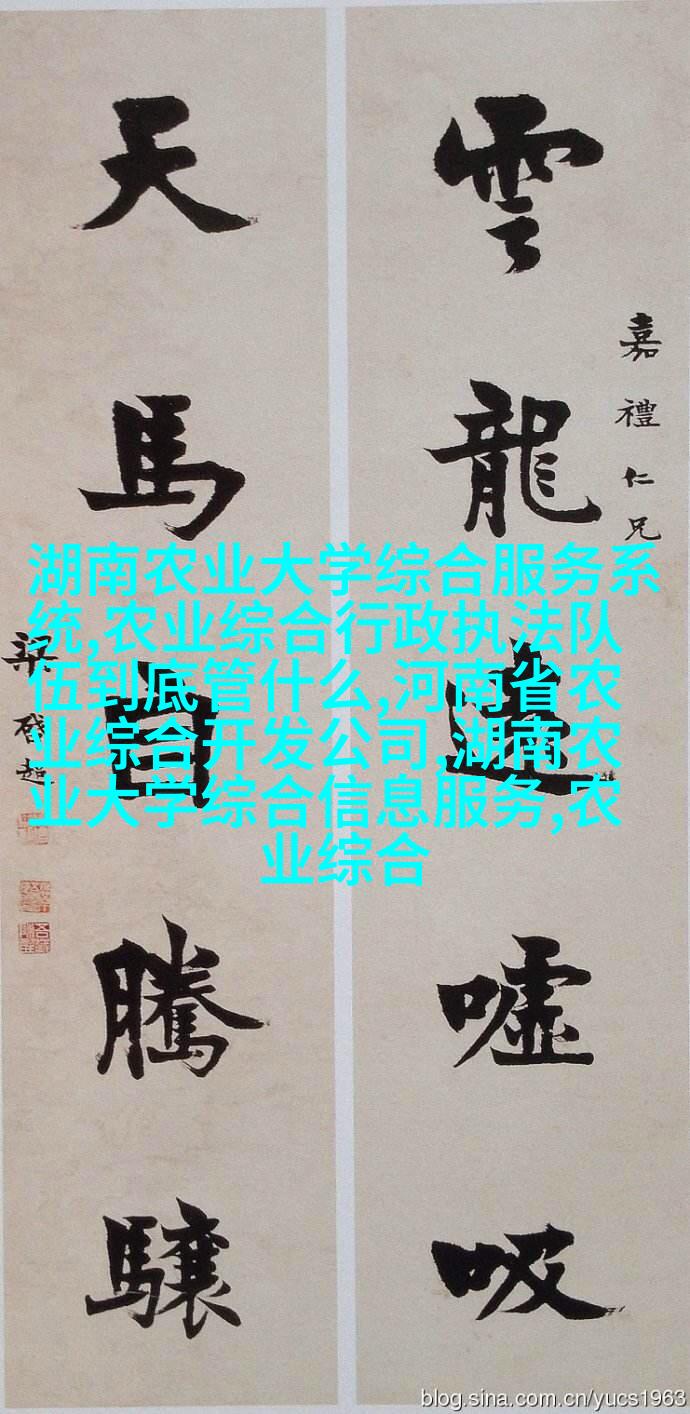 雲龍遠噓吸
嘉禮仁兄
天馬自騰驤
梁啓超
湖南农业大学综合服务系
统,农业综合行政执法队
伍到底管什么,河南省农
业综合开发公司,湖南农
业大学综合信息服务,农
业综合
blog.sina.com.cn/yucs1963